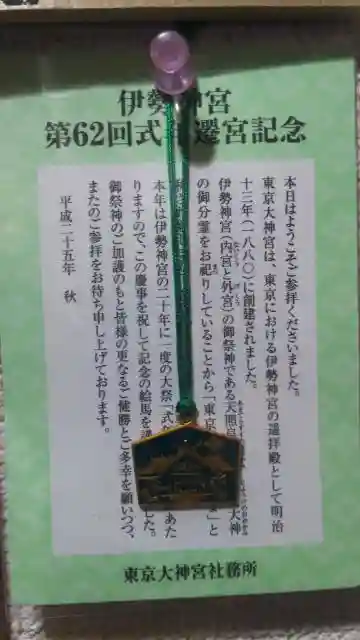 伊勢神宮
第62回式 遷宮記念
本日はようこそご参拝くださいました。
東京大神宮は、東京における伊勢神宮の遥拝殿として明治
十三年(一八八〇)に創建されました。
伊勢神宮(内宮と外宮)の御祭神である天照皇 大神
の御分霊をお祀りしていることから「東京 」と
本年は伊勢神宮の二十年に一度の大祭「式 あた
りますので、この慶事を祝して記念の絵馬を謹 した。
御祭神のご加護のもと皆様の更なるご健勝とご多幸を願いつつ、
またのご参拝をお待ち申し上げております。
平成二十五年 秋
東京大神宮社務所